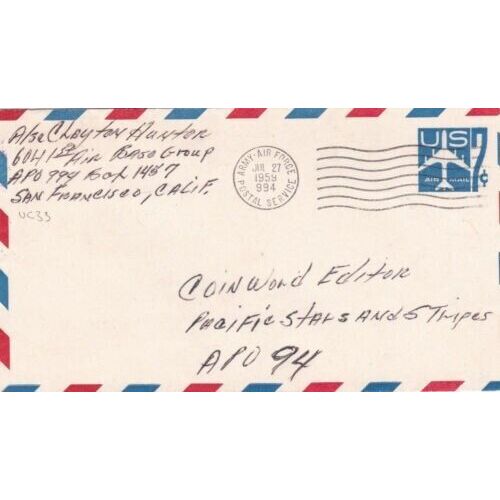 A/2c Clayton Hunter
6041st Air Base Group
APO 994 Box 1457
San Francisco, Calif.
UC33
ARMY-AIR FORCE
JUL 27
1959
994
POSTAL SERVICE
US 7¢
AIR MAIL
Coinword Editor
Pacific Stars and Stripes
APO 94